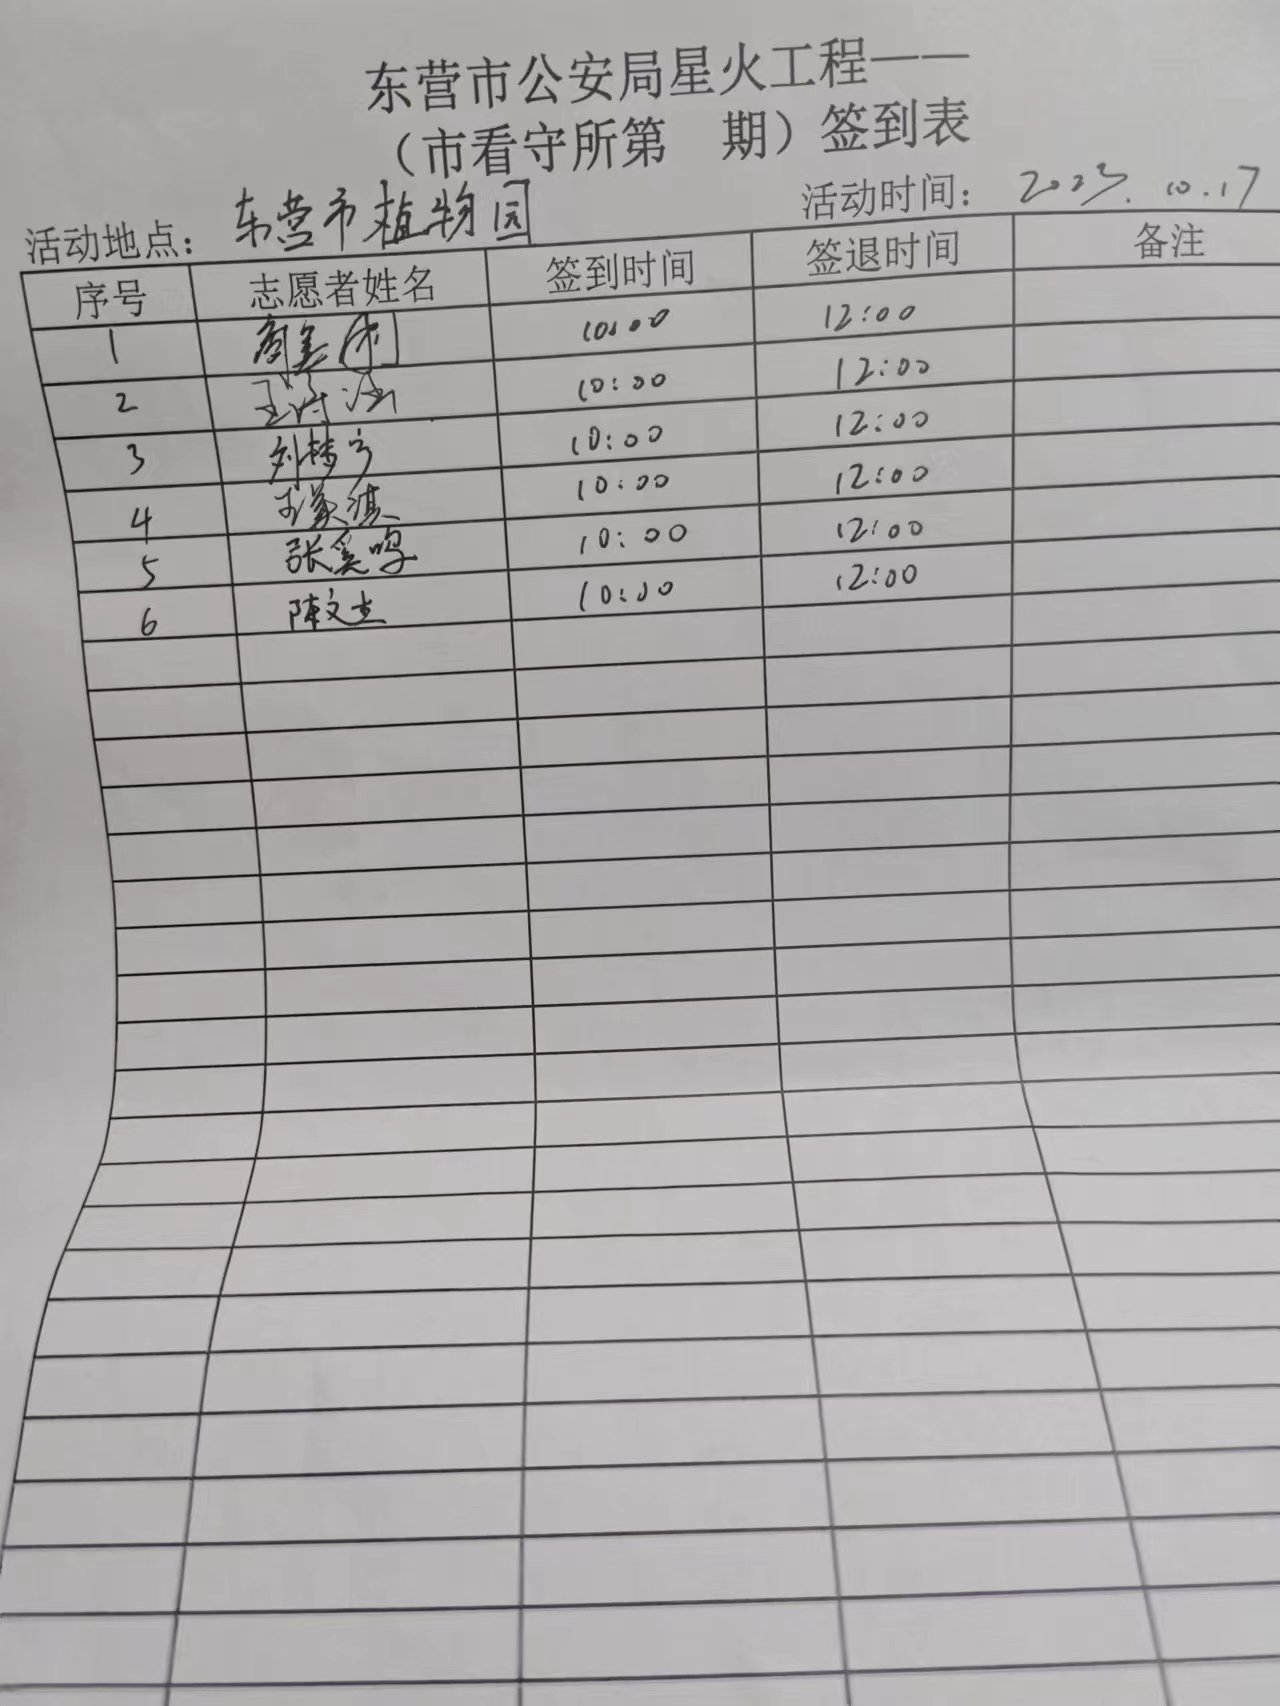 东营市公安局星火工程——
（市看守所第 期）签到表
活动地点：东营市植物园 活动时间：2023.10.17
序号 志愿者姓名 签到时间 签退时间 备注
1 10:00 12:00
2 王 10:00 12:00
3 刘 10:00 12:00
4 10:00 12:00
5 张 鸣 10:00 12:00
6 陈文 10:00 12:00